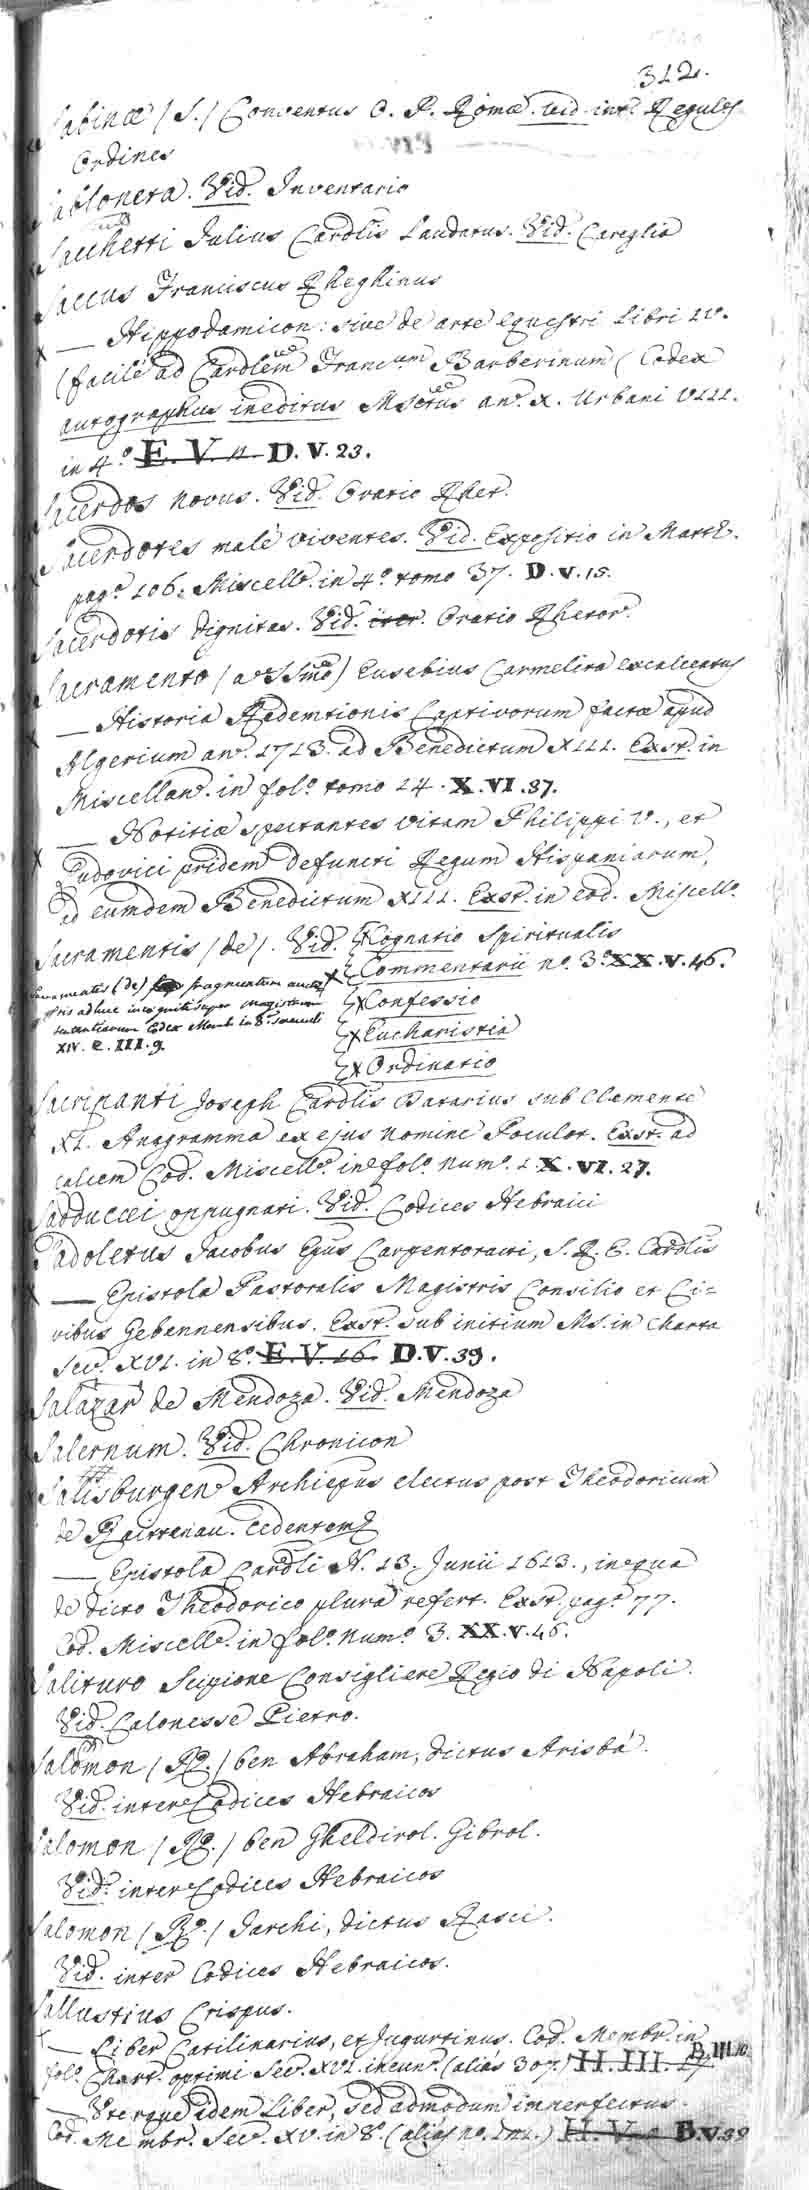 312.
Sabinæ (S.) Conventus O. P. Romæ. Vid. int. Regul.
Ordines
Sabloneta. Vid. Inventario
Sacchetti Julius Cardlis Laudatus. Vid. Careglia
Saccus Franciscus Rheghinus
x — Hippodamicon: sive de arte equestri Libri IV.
(facile ad Cardlem Francum Barberinum (Codex
autographus ineditus MSctus an. X. Urbani VIII.
in 4.º E. V. 11. D. V. 23.
Sacerdos novus. Vid. Oratio Rhet.
Sacerdotes malè viventes. Vid. Expositio in Matth.
pag. 106. Miscell. in 4.º tomo 37. D. V. 15.
Sacerdotis dignitas. Vid. iter. Oratio Rhetor.
Sacramento (a SSmo) Eusebius Carmelita excalceatus
x — Historia Redemtionis Captivorum factæ apud
Algerium an. 1713. ad Benedictum XIII. Exst. in
Miscellan. in fol. tomo 14. X. VI. 37.
x — Notitiæ spectantes vitam Philippi V., et
Ludovici pridem defuncti Regum Hispaniarum,
ad eumdem Benedictum XIII. Exst. in eod. Miscell.
Sacramentis (de). Vid. x Cognatio Spiritualis
x Commentarii nº. 3º XX. V. 46.
x Confessio
x Eucharistia
x Ordinatio
Sacramentis (de) fragmentum auctoris adhuc incogniti super magistrum
sententiarum Codex Memb. in 8.º saeculi
XIV. E. III. 9.
Sacripanti Joseph Cardlis Datarius sub Clemente
x XI. Anagramma ex ejus nomine Poculor. Exst. ad
calcem Cod. Miscell. in fol. num. 1 X. VI. 27.
Sadducei oppugnati. Vid. Codices Hebraici
Sadoletus Jacobus Epus Carpentoracti, S. R. E. Cardlis
x — Epistola Pastoralis Magistris Consilio et Ci=
vibus Gebennensibus. Exst. sub initium Ms. in Charta
Sec. XVI. in 8.º E. V. 16. D. V. 39.
Salazar de Mendoza. Vid. Mendoza
Salernum. Vid. Chronicon
Salisburgen. Archiepus electus post Theodoricum
de Raittenau. cedentem
— Epistola Cardli N. 13. Junii 1613., in qua
de dicto Theodorico plura refert. Exst. pag. 77.
Cod. Miscell. in fol. num. 3. XX. V. 46.
Salituro Scipione Consigliere Regio di Napoli.
Vid. Calonesse Pietro.
Salomon (R.) ben Abraham, dictus Arisba.
Vid. inter Codices Hebraicos
Salomon (R.) ben Gheldirol. Gibrol.
Vid. inter Codices Hebraicos
Salomon (R.) Jarchi, dictus Rasci.
Vid. inter Codices Hebraicos.
Sallustius Crispus.
— Liber Catilinarius, et Jugurtinus. Cod. Membr. in
fol. Chart. optimi Sec. XVI. ineun. (alias 307.) H. III. 17 B. III. 10
— Uterque idem Liber, sed admodum imperfectus.
Cod. Membr. Sec. XV. in 8. (alias no.) H. V. B. V. 39